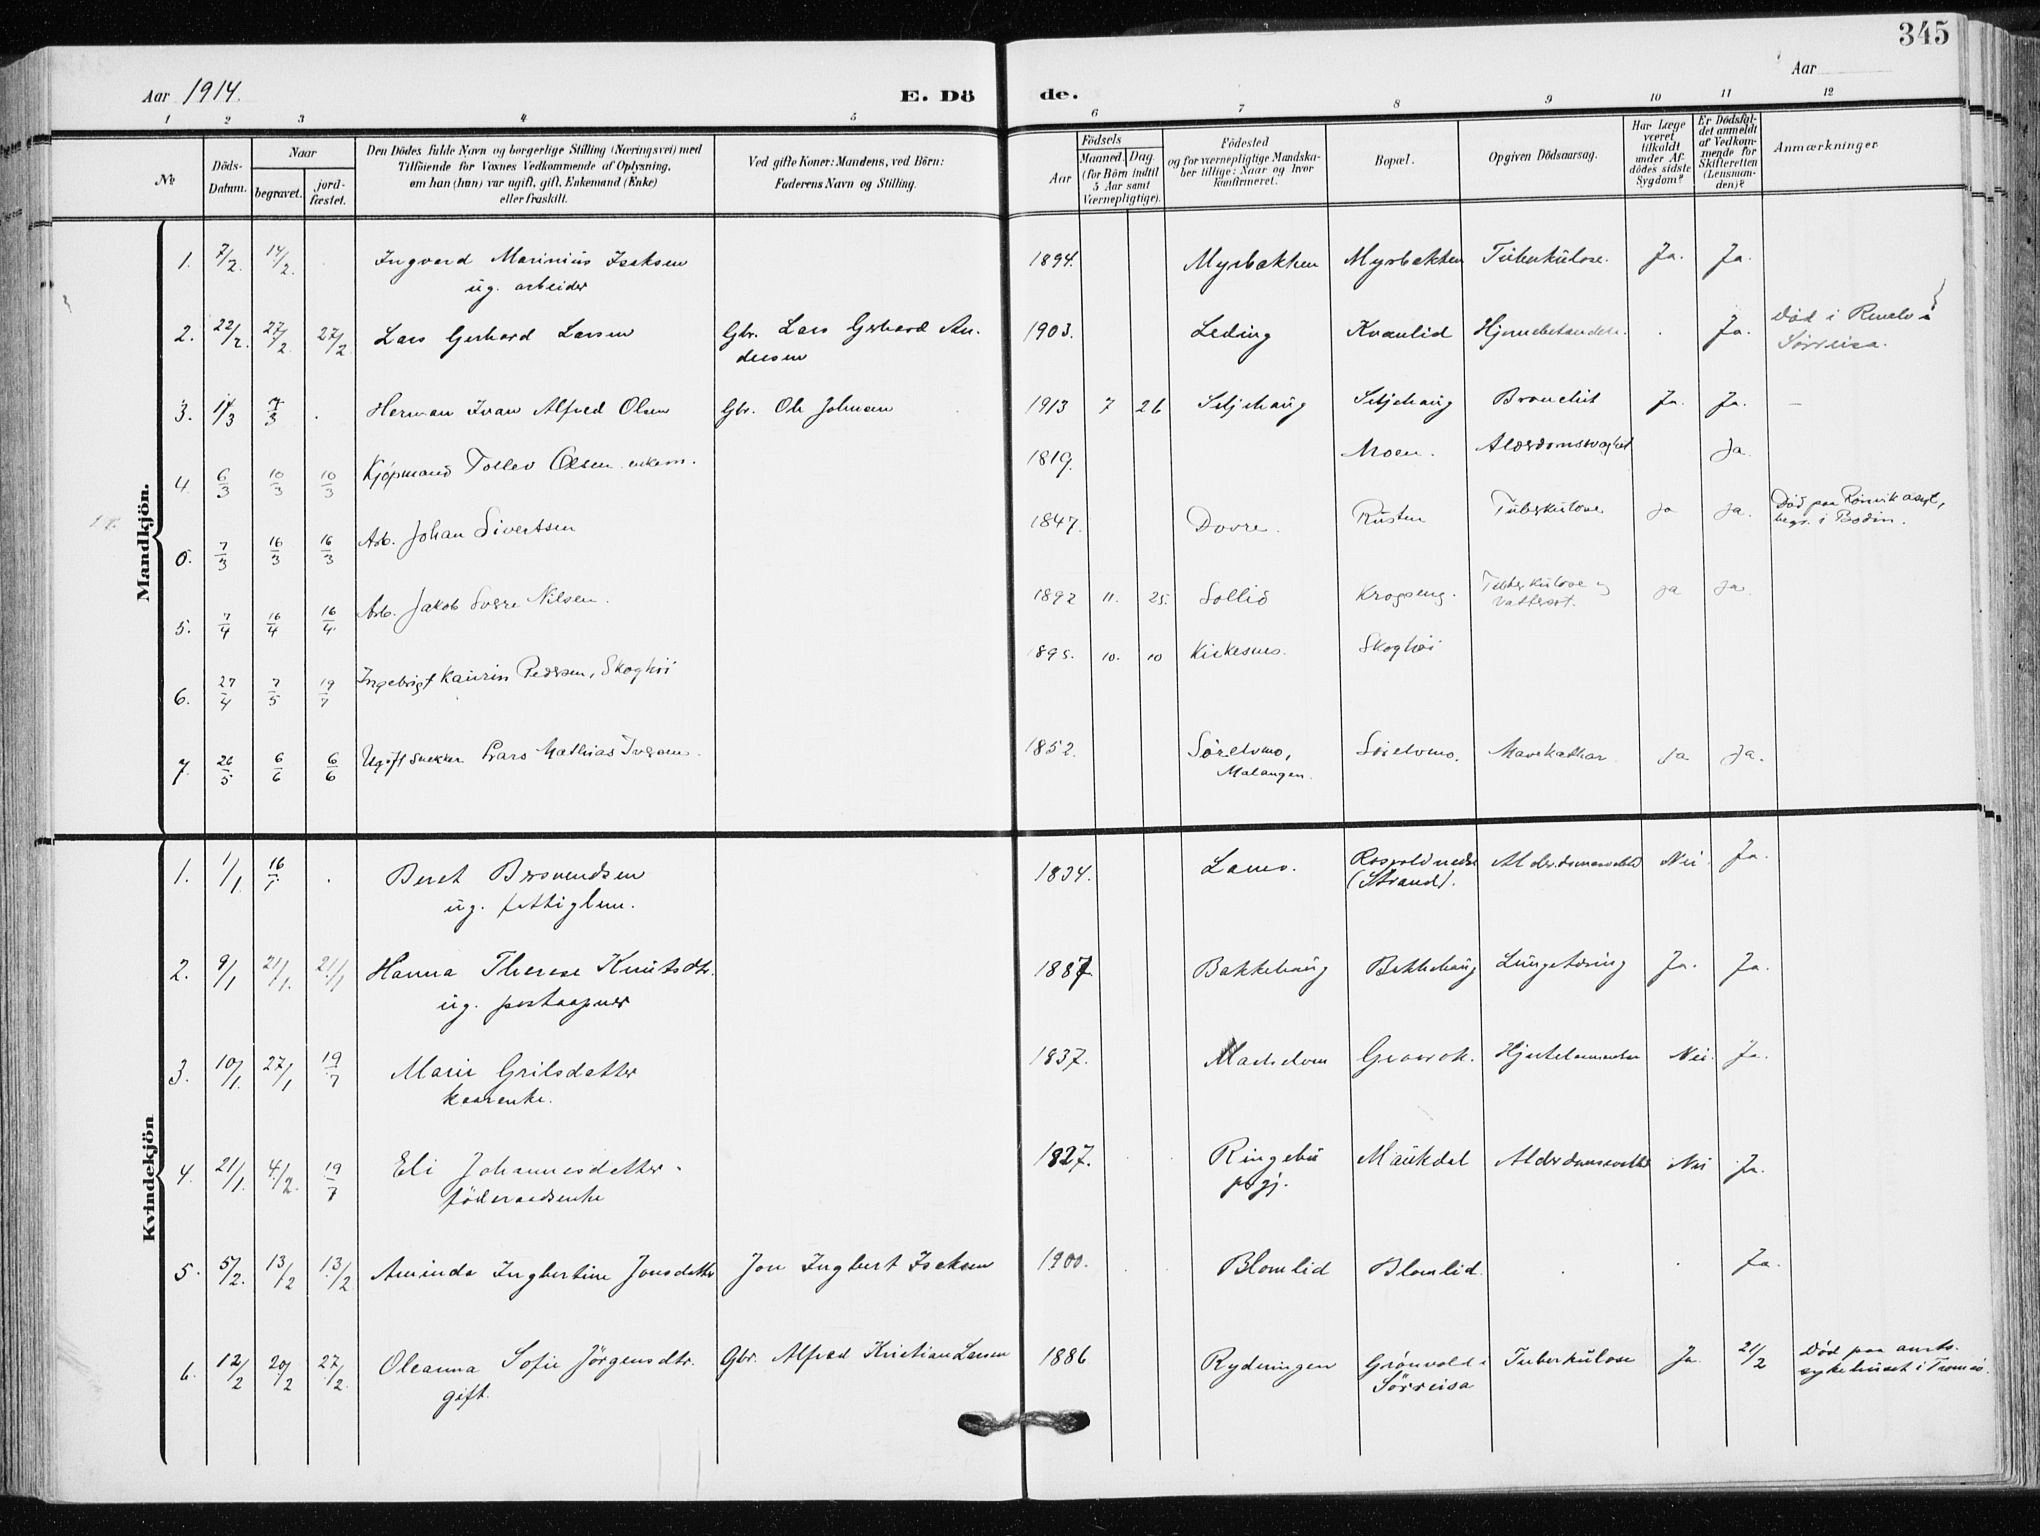 345
Aar 1914.
E. Dö de.
Aar
1 2 3 4 5 6 7 8 9 10 11 12
№
Döds-
Datum.
Naar
begravet.
jord-
fæstet.
Den Dödes fulde Navn og borgerlige Stilling (Næringsvei) med
Tilföiende för Voxnes Vedkommende af Oplysning,
om han (hun) var ugift, gift, Enkemand (Enke)
eller fraskilt.
Ved gifte Koner: Mandens, ved Börn:
Faderens Navn og Stilling.
Födsels
Aar
Maaned. Dag
(for Börn indtil
5 Aar samt
Værnepligtige).
Födested
og for værnepligtige Mandska-
ber tillige: Naar og hvor
konfirmeret.
Bopæl.
Opgiven Dödsaarsag.
Har Læge
været
tilkaldt
under Af-
dödes sidste
Sygdom?
Er Dödsfal-
det anmeldt
af Vedkom-
mende for
Skifteretten
(Lensman-
den)?
Anmærkninger
Mandkjön.
1. 7/2 14/2 . Ingvard Marinius Isaksen 1894. Myrbakken Myrbakken Tuberkulose. Ja. Ja.
ug. arbeider
2. 22/2 27/2 27/2 Lars Gerhard Larsen Gbr. Lars Gerhard An- 1903. Leding Kvanlid . Ja. Død i
dersen Sørreisa.
3. 1/3 7/3 . Herman Ivar Alfred Olsen Gbr. Ole Johnsen 1913 7 26 Seljehaug Seljehaug Bronchit Ja. Ja. —
4. 6/3 10/3 10/3 Kjøpmand Tollev Olsen enkem. 1819. Moen. Alderdomssvaghet Ja.
5. 7/3 16/3 16/3 Arb. Johan Sivertsen 1847. Dovre. Rusten Tuberkulose ja ja. Død paa Rønvik asyl,
begr. i Bodin.
5. 7/4 16/4 16/4 Arb. Jakob Sverre Nilsen. 1892 11. 25. Sollid Krogseng. Tuberkulose og ja ja.
Vattersot.
6. 27/4 7/5 19/7 Ingebrigt Kaurin Pedersen, Skoghøi 1895. 10. 10 Kirkesnes. Skoghøi
7. 26/5 6/6 6/6 Ugift snekker Lars Mathias Iversen. 1852. Sørelvmo, Sørelvmo. Mavekathar ja ja.
Malangen.
Kvindekjön
1. 1/1 16/1 . Beret Bersvendsen 1834. Lamo. Alderdomssvakhet Nei. Ja.
ug. fattiglem. (Strand).
2. 9/1 21/1. 21/1 Hanna Therese Knutsdtr. 1887 Bakkehaug Bakkehaug Lungetæring Ja. Ja.
ug. postaapner
3. 10/1. 27/1 19/7 Marie Grilsdatter 1837. Nei. Ja.
kaarenke.
4. 21/1. 4/2. 19/7 Eli Johannesdatter 1827. Ringebu Maukdal Alderdomssvakhet Nei Ja.
føderaadsenke prgj.
5. 5/2. 13/2 13/2 Aminda Ingbertine Jonsdatter Jon Ingbert Isaksen 1900. Blomlid Blomlid. . . Ja.
6. 12/2 20/2 27/2. Oleanna Sofie Jørgensdtr. Gbr. Alfred Kristian Larsen 1886 Rydningen Grønvold i Tuberkulose Ja. 21/2 Død paa amts-
gift. Sørreisa sykehuset i Tromsø.